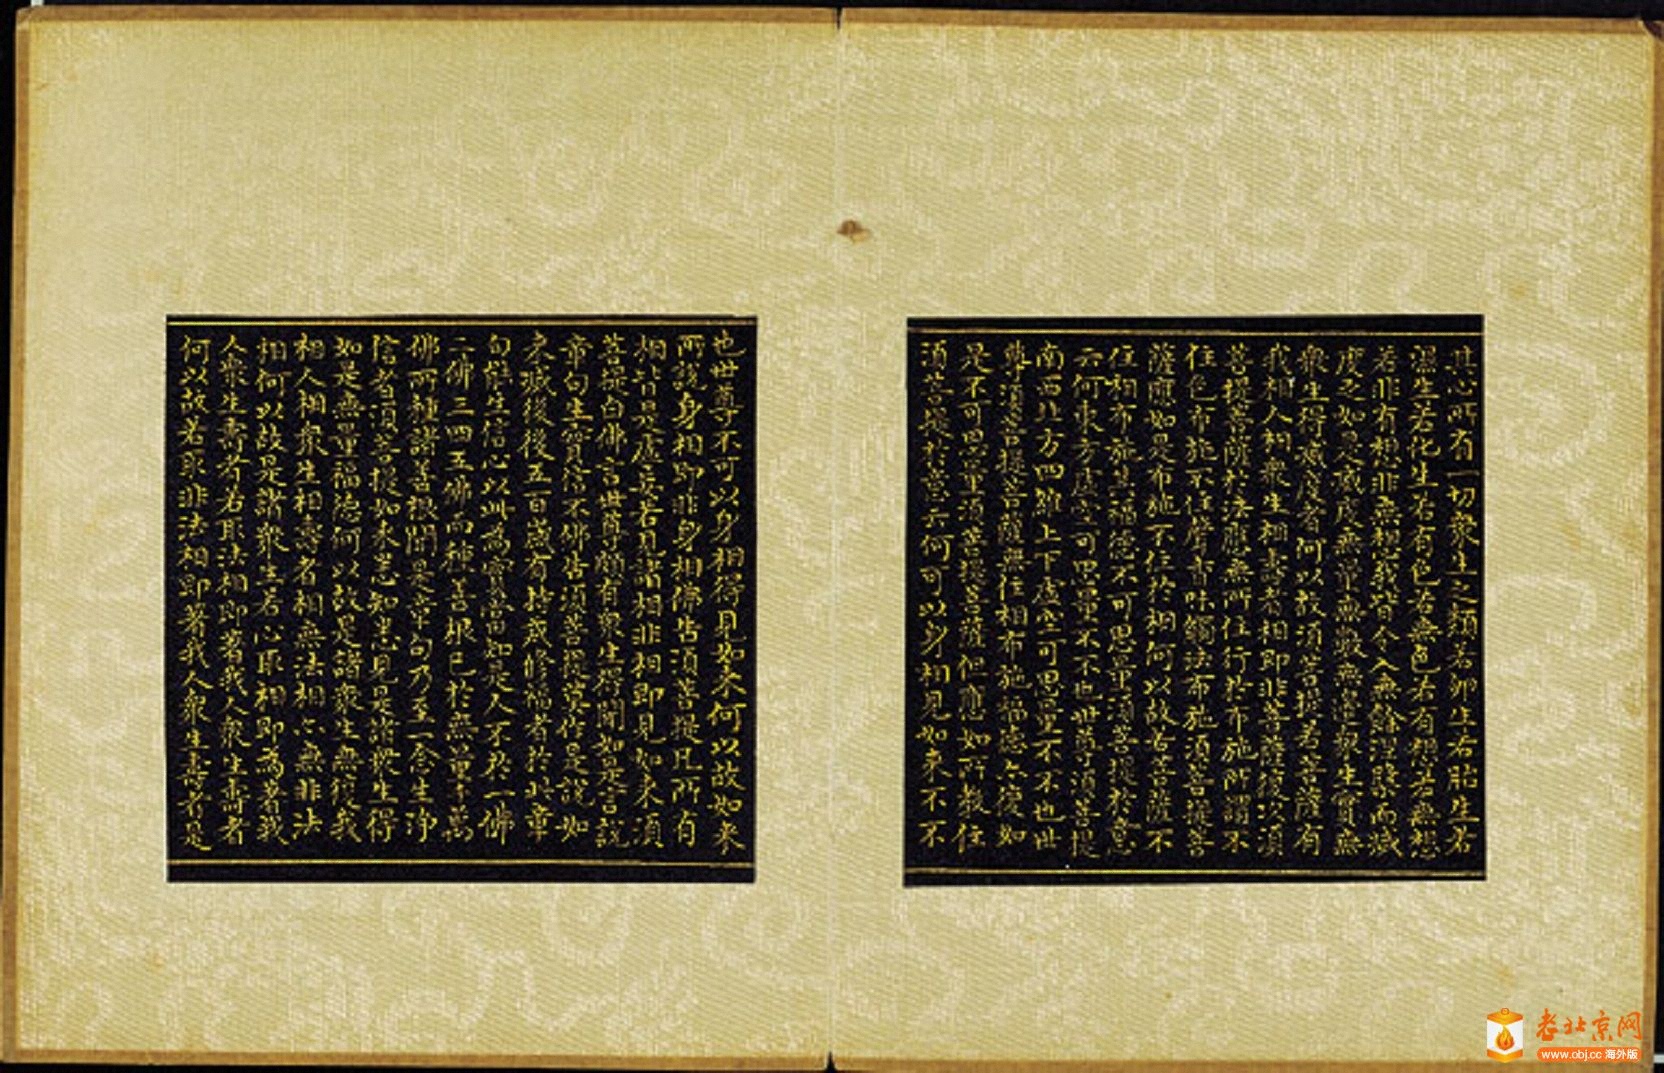 其心所有一切衆生之類若卵生若胎生若
濕生若化生若有色若無色若有想若無想
若非有想非無想我皆令入無餘涅槃而滅
度之如是滅度無量無數無邊衆生實無
衆生得滅度者何以故須菩提若菩薩有
我相人相衆生相壽者相即非菩薩復次須
菩提菩薩於法應無所住行於布施所謂不
住色布施不住聲香味觸法布施須菩提菩
薩應如是布施不住於相何以故若菩薩不
住相布施其福德不可思量須菩提於意
云何東方虛空可思量不不也世尊須菩提
南西北方四維上下虛空可思量不不也世
尊須菩提菩薩無住相布施福德亦復如
是不可思量須菩提菩薩但應如所教住
須菩提於意云何可以身相見如來不不
也世尊不可以身相得見如來何以故如來
所說身相即非身相佛告須菩提凡所有
相皆是虛妄若見諸相非相即見如來須
菩提白佛言世尊頗有衆生得聞如是言說
章句生實信不佛告須菩提莫作是說如
來滅後後五百歲有持戒修福者於此章
句能生信心以此為實當知是人不於一佛
二佛三四五佛而種善根已於無量千萬
佛所種諸善根聞是章句乃至一念生淨
信者須菩提如來悉知悉見是諸衆生得
如是無量福德何以故是諸衆生無復我
相人相衆生相壽者相無法相亦無非法
相何以故是諸衆生若心取相即為著我
人衆生壽者若取法相即著我人衆生壽者
何以故若取非法相即著我人衆生壽者是
老北京网
www.obj.cc 海外版